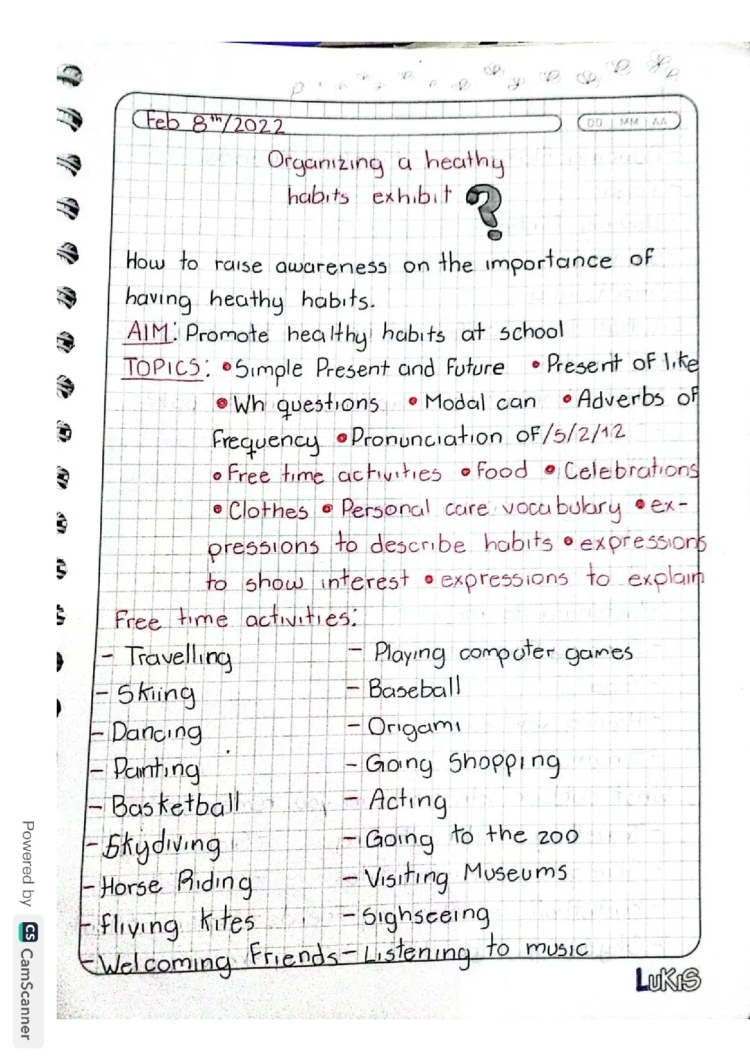 Feb 8th/2022
DD MM AA
Organizing a heathy
habits exhibit ?
How to raise awareness on the importance of
having heathy habits.
AIM: Promote healthy habits at school
TOPICS: •Simple Present and Future •Present of like
•Wh questions •Modal can •Adverbs of
Frequency •Pronunciation OF/s/z/ız
•Free time activities •Food •Celebrations
•Clothes •Personal care vocabulary •ex-
pressions to describe habits •expressions
to show interest •expressions to explain
Free time activities:
- Travelling
- Skiing
- Dancing
- Painting
- Basketball
- Skydiving
- Horse Riding
- fliying kites
- Welcoming Friends
- Playing computer games
- Baseball
- Origami
- Going Shopping
- Acting
- Going to the zoo
- Visiting Museums
- Sighseeing
- Listening to music
LuKiS
Powered by CS CamScanner